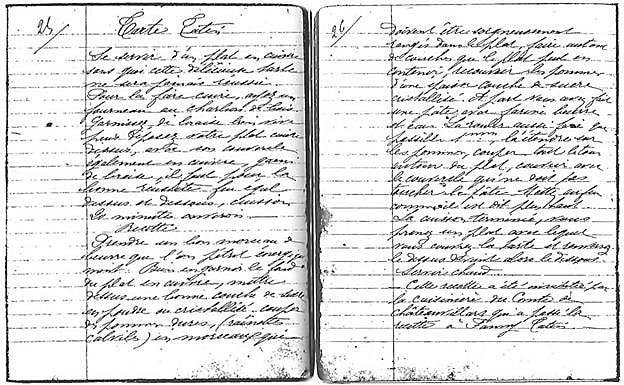 25/ Tarte Tatin
Se servir d'un plat en cuivre
sans quoi cette délicieuse tarte
ne sera jamais réussie
Pour la faire cuire, avoir un
fourneau au charbon de bois
garnissez de braise bien vive
puis déposez votre plat cuivre
dessus, avec son couvercle
également en cuivre, garni
de braise, il faut pour la
bonne réussite feu égal
dessus et dessous, cuisson
20 minutes environ
Recette
Prendre un bon morceau de
beurre que l'on pétrit
Bien en garnir le fond
du plat en cuivre, mettre
dessus une bonne couche de sucre
en poudre ou cristallisé couper
des pommes dures, (reinette
calvilles) en morceaux qui
26/
doivent être soigneusement
rangés dans le plat, faire autant
de couches que le plat peut en
contenir, recouvrir les pommes
d'une épaisse couche de sucre
cristallisé. À part vous avez fait
une pâte avec farine beurre
et eau. La rouler aussi fine que
possible, l'étendre sur
les pommes, couper tout bien
autour du plat, couvrir avec
le couvercle qui ne doit pas
toucher à la pâte. Mettre au feu
comme il est dit plus haut
La cuisson terminée, vous
prenez un plat avec lequel
vous couvrez la tarte et renversez
le dessus devient alors le dessous.
Servir chaud
Cette recette a été inventée par
la cuisinière du Comte de
Châteauvillars qui a passé la
recette à Fanny Tatin.